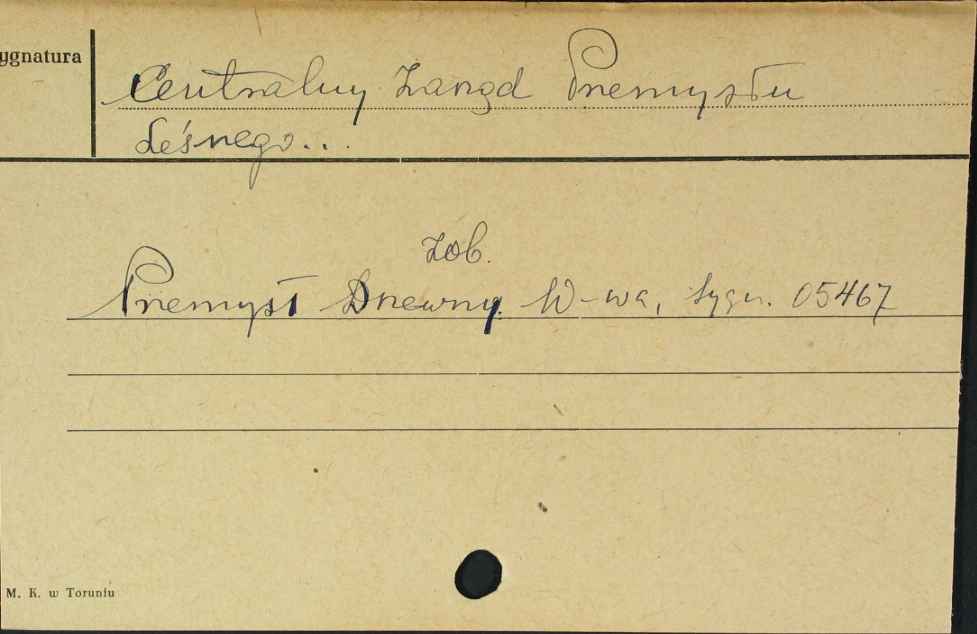 ygnatura
Centralny Zarząd Przemysłu
Leśnego...
Zob.
Przemysł Drzewny. W-wa, Sygn. 05467
M. K. w Toruniu